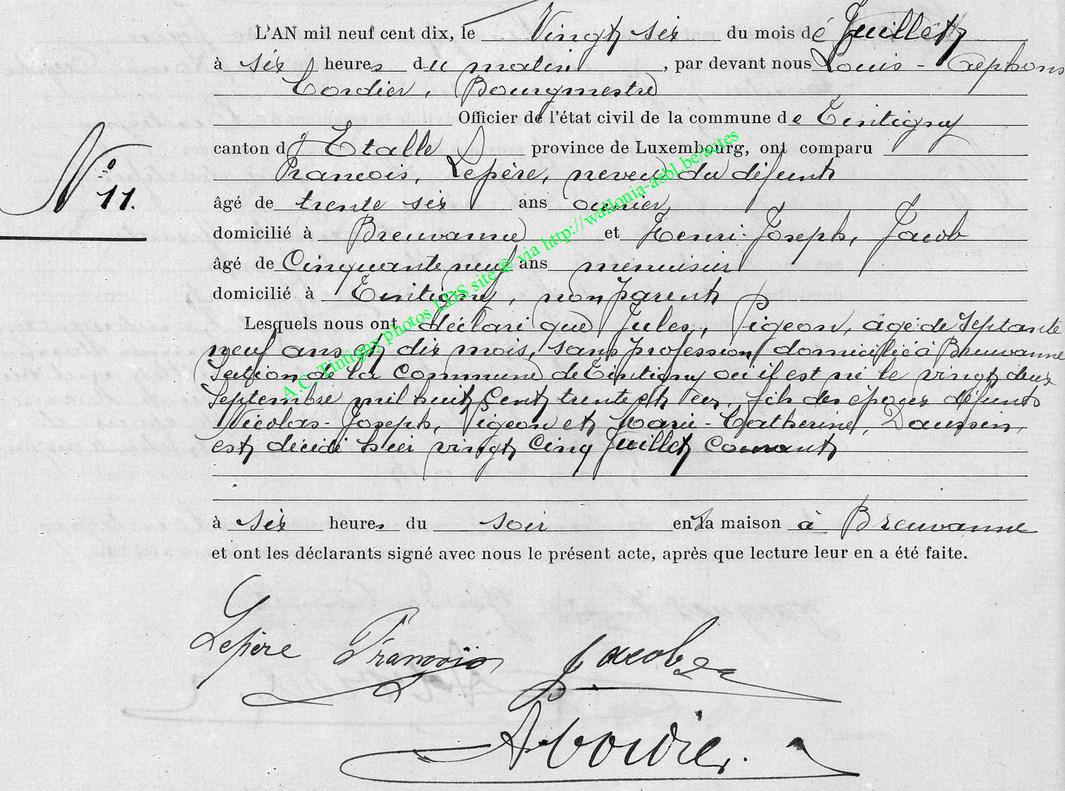 L'AN mil neuf cent dix, le Vingt six du mois de Juillet
à six heures du matin, par devant nous Louis-
Cordier, Bourgmestre
Officier de l'état civil de la commune de Tintigny
canton d'Etalle province de Luxembourg, ont comparu
François, Lepère, neveu du défunt
N° 11.
âgé de trente six ans ouvrier,
domicilié à Breuvanne et Henri-Joseph, Jacob
âgé de Cinquante neuf ans menuisier
domicilié à Tintigny, non parent
Lesquels nous ont déclaré que Jules, Pigeon, âgé de septante
neuf ans et dix mois, sans profession, domicilié à Breuvanne
Section de la Commune de Tintigny où il est né le vingt deux
Septembre mil huit Cent trente et , fils des époux défunts
Nicolas-Joseph, Pigeon et Marie-Catherine, Daussen,
est décédé hier vingt cinq Juillet Courant
à six heures du soir en sa maison à Breuvanne
et ont les déclarants signé avec nous le présent acte, après que lecture leur en a été faite.
Lepère François Jacob
A.C. Tintigny photos LDS site @ via http://wallonia-asbl.be/actes